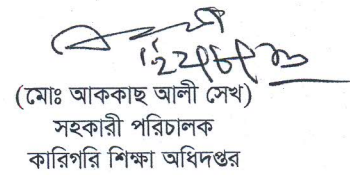 (মোঃ আককাছ আলী সেখ)
সহকারী পরিচালক
কারিগরি শিক্ষা অধিদপ্তর